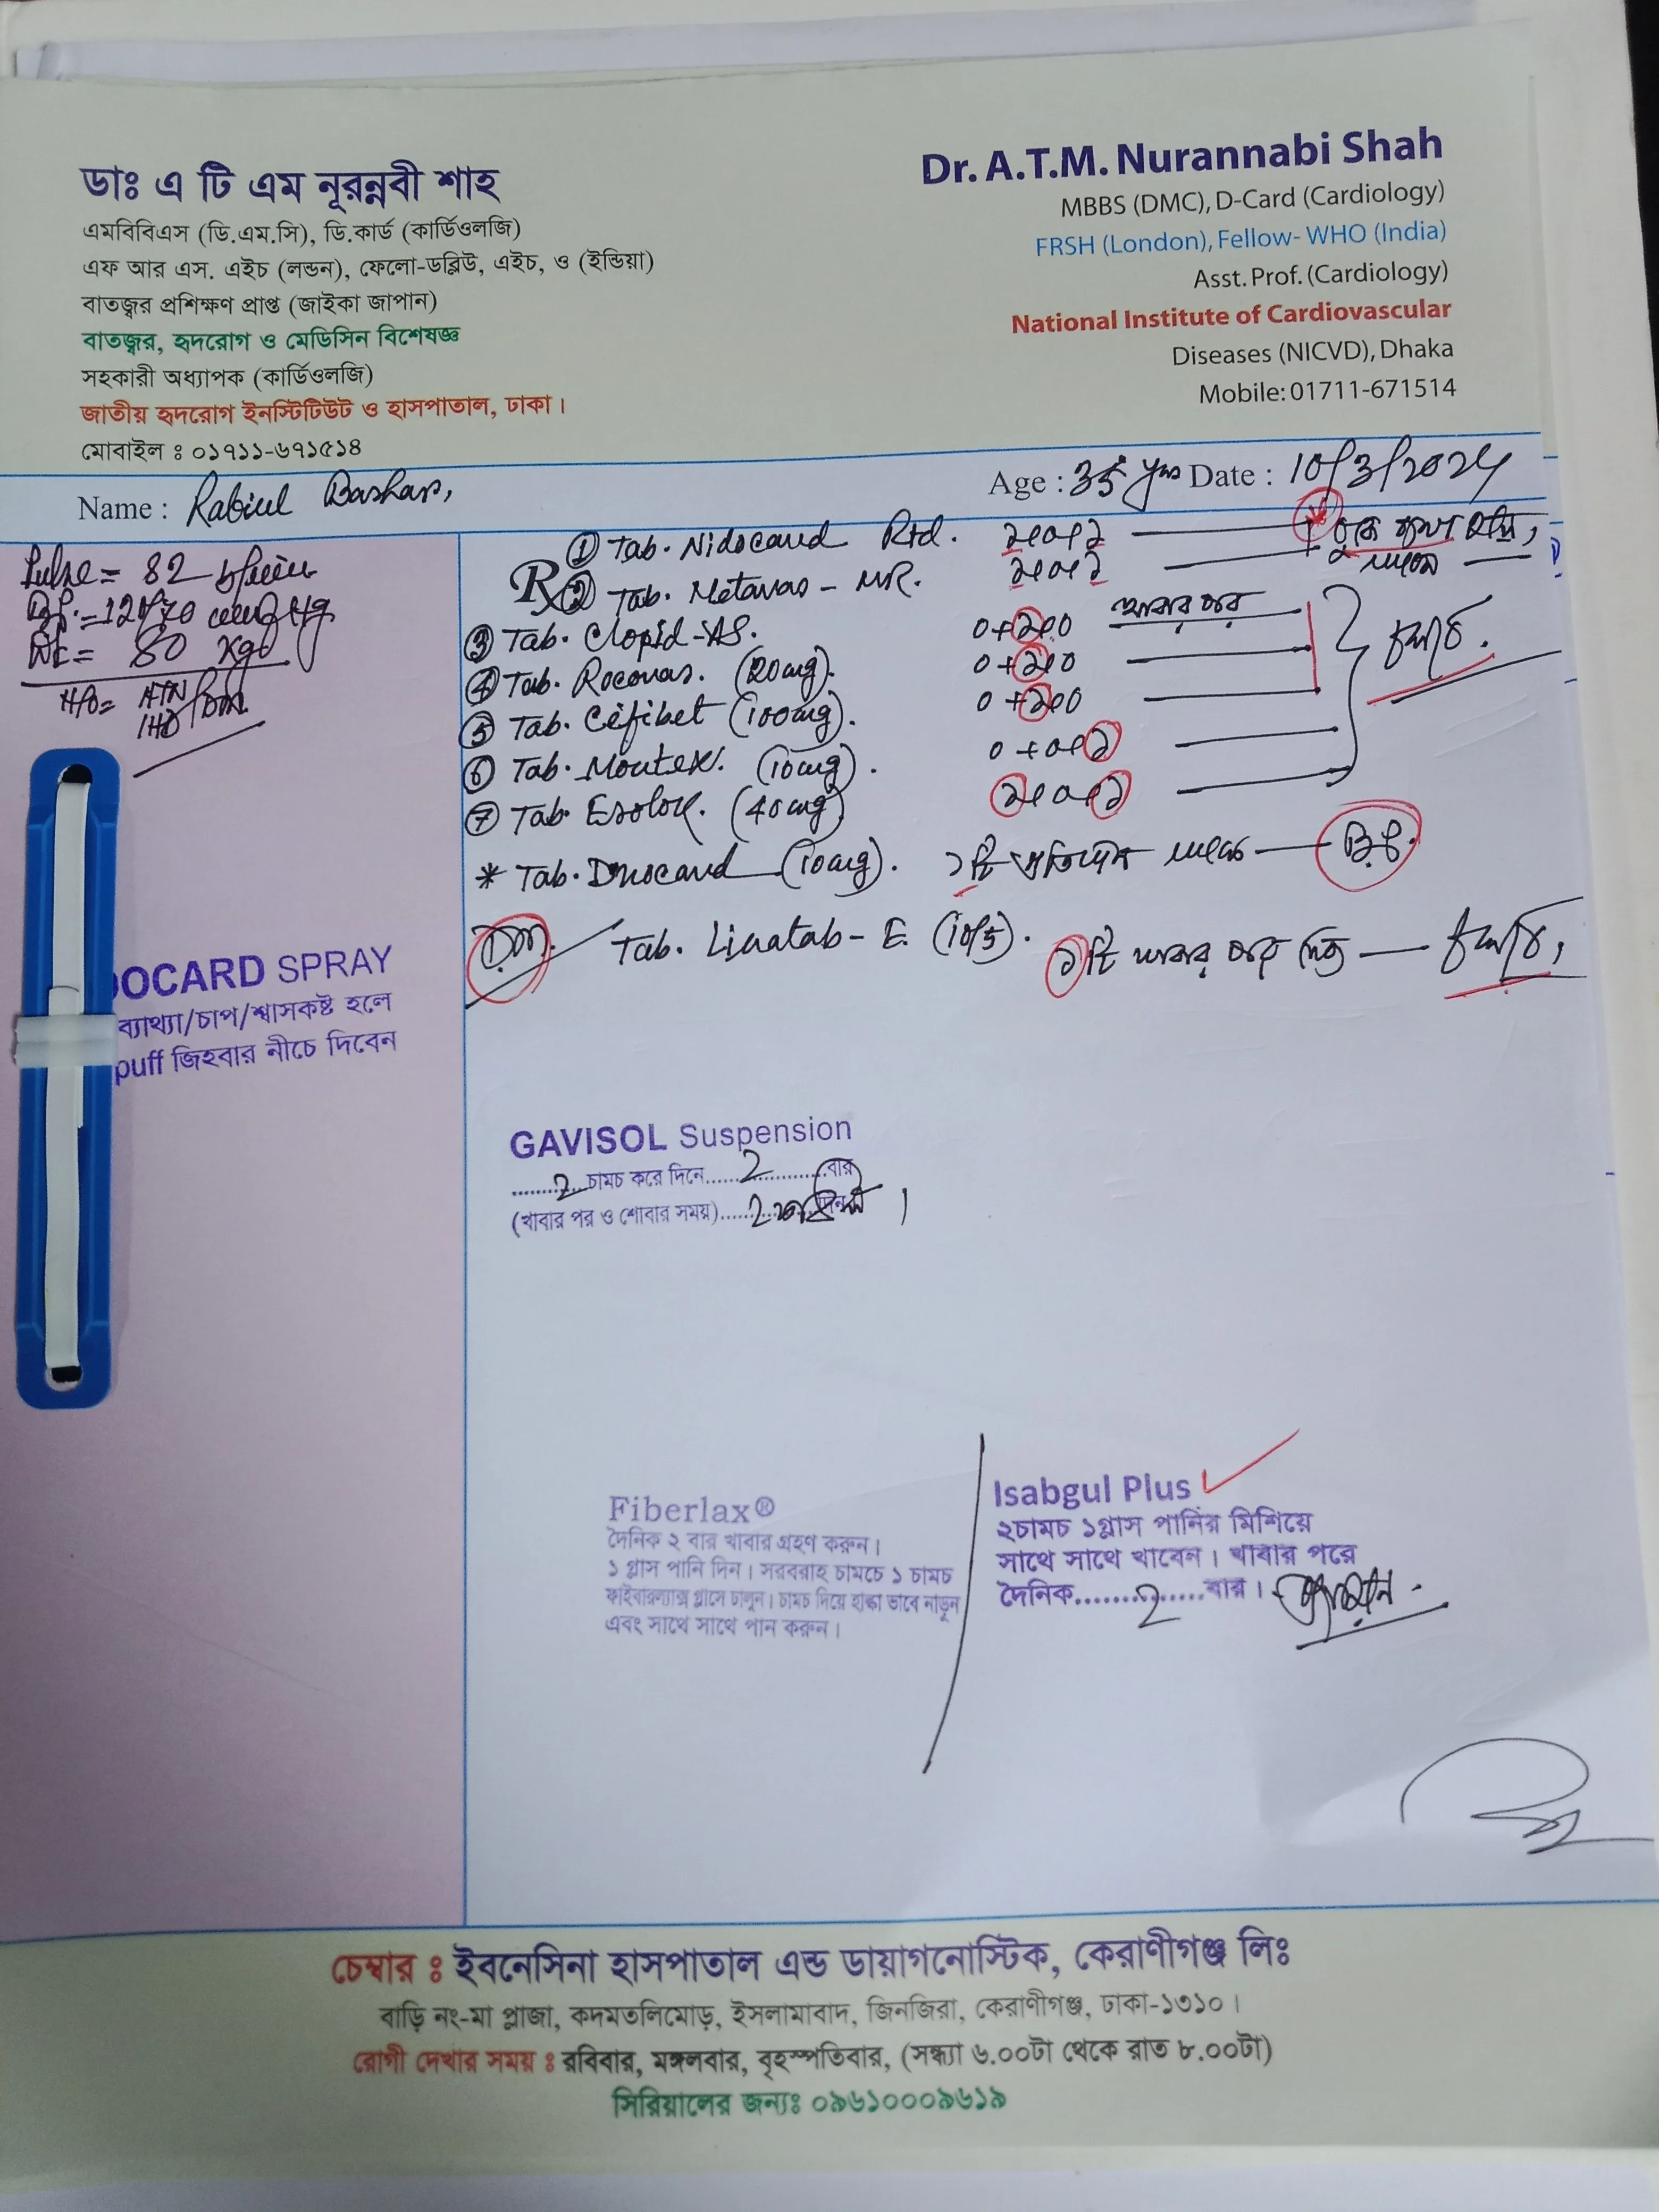 ডাঃ এ টি এম নূরন্নবী শাহ
এমবিবিএস (ডি.এম.সি), ডি.কার্ড (কার্ডিওলজি)
এফ আর এস. এইচ (লন্ডন), ফেলো-ডব্লিউ, এইচ, ও (ইন্ডিয়া)
বাতজ্বর প্রশিক্ষণ প্রাপ্ত (জাইকা জাপান)
বাতজ্বর, হৃদরোগ ও মেডিসিন বিশেষজ্ঞ
সহকারী অধ্যাপক (কার্ডিওলজি)
জাতীয় হৃদরোগ ইনস্টিটিউট ও হাসপাতাল, ঢাকা।
মোবাইল ঃ ০১৭১১-৬৭১৫১৪
Dr. A.T.M. Nurannabi Shah
MBBS (DMC), D-Card (Cardiology)
FRSH (London), Fellow- WHO (India)
Asst. Prof. (Cardiology)
National Institute of Cardiovascular
Diseases (NICVD), Dhaka
Mobile: 01711-671514
Name : Rabiul Bashar,
Age : 35 yrs Date : 10/3/2024
Pulse = 82
BP. = 120/70
Wt = 80 Kgs
H/O = HTN
IHD/DM
Rx
① Tab. Nidocard Rtd. ১+০+১
② Tab. Metavas - MR. ১+০+১
③ Tab. Clopid-AS. 0+১+0 খাবার পর
④ Tab. Rocovas. (20mg). 0+১+0
⑤ Tab. Cifibet (100mg). 0+১+0
⑥ Tab. Montex. (10mg). 0+0+১
⑦ Tab. Esoloc. (40mg) ১+0+১
চলবে.
* Tab. (10mg). ১টি প্রতিদিন B.P.
DM. Tab. Linatab - E. (10/5). ১টি খাবার পর চলবে,
OCARD SPRAY
ব্যাথ্যা/চাপ/শ্বাসকষ্ট হলে
puff জিহবার নীচে দিবেন
GAVISOL Suspension
........2..চামচ করে দিনে......2.........বার
(খাবার পর ও শোবার সময়)......2
Fiberlax®
দৈনিক ২ বার খাবার গ্রহণ করুন।
১ গ্লাস পানি দিন। সরবরাহ চামচে ১ চামচ
ফাইবারল্যাক্স গ্লাসে ঢালুন। চামচ দিয়ে হাল্কা ভাবে নাড়ুন
এবং সাথে সাথে পান করুন।
Isabgul Plus
২চামচ ১গ্লাস পানির মিশিয়ে
সাথে সাথে খাবেন। খাবার পরে
দৈনিক.........2......বার।
চেম্বার ঃ ইবনেসিনা হাসপাতাল এন্ড ডায়াগনোস্টিক, কেরাণীগঞ্জ লিঃ
বাড়ি নং-মা প্লাজা, কদমতলিমোড়, ইসলামাবাদ, জিনজিরা, কেরাণীগঞ্জ, ঢাকা-১৩১০।
রোগী দেখার সময় ঃ রবিবার, মঙ্গলবার, বৃহস্পতিবার, (সন্ধ্যা ৬.০০টা থেকে রাত ৮.০০টা)
সিরিয়ালের জন্যঃ ০৯৬১০০০৯৬১৯